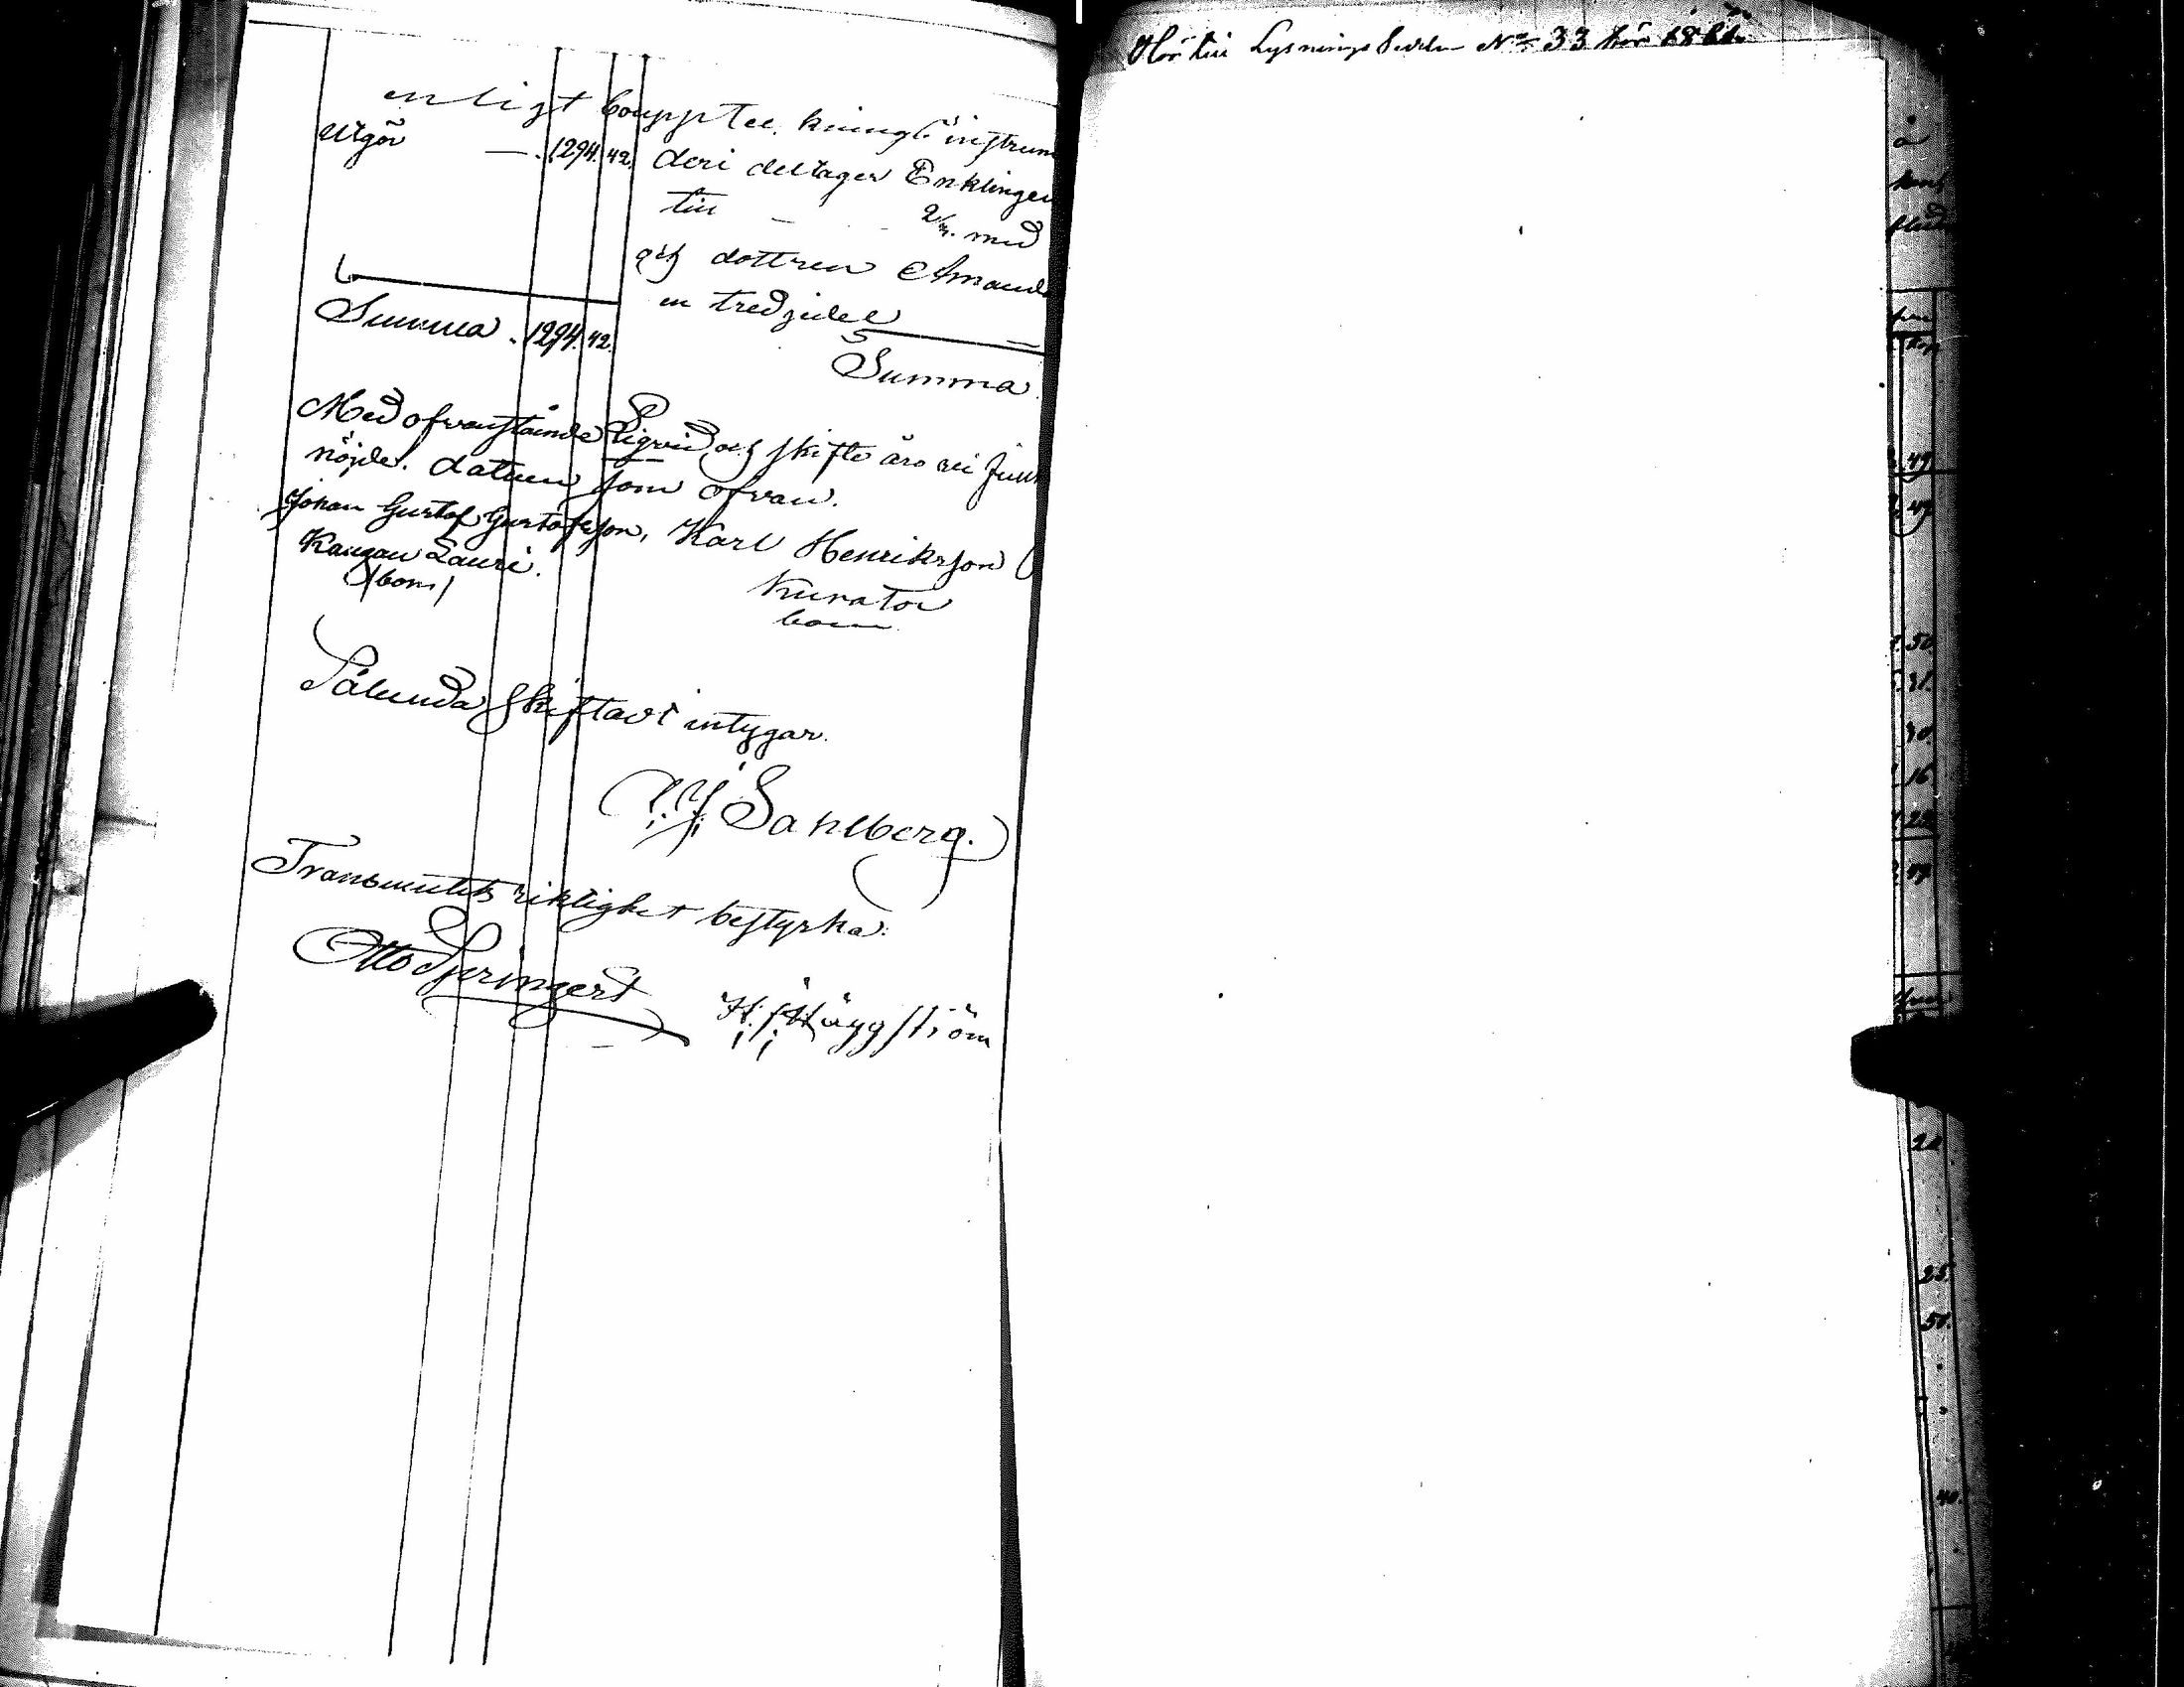 enligt bouppteckningsinstrum
Utgör — 1294. 42. deri deltager Enklingen
till — 2/3. med
och dottren Amanda
en tredjedel
Summa . 1294. 42.
Summa.
Med ofvanstående och skifte äro vi
nöjde. datum som ofvan.
Johan Gustaf Gustafsson, Karl Henriksson
Kangan Lauri.
Kurator
(bom)
bom
Sålunda skiftadt intygar.
Sahlberg.
Transumtets riktighet bestyrka:
Otto Springert
H. J. Häggström
Hör till Lysnings N:o 33 för
49
47
50
31.
30.
16
22
77
21
25.
51.
40.